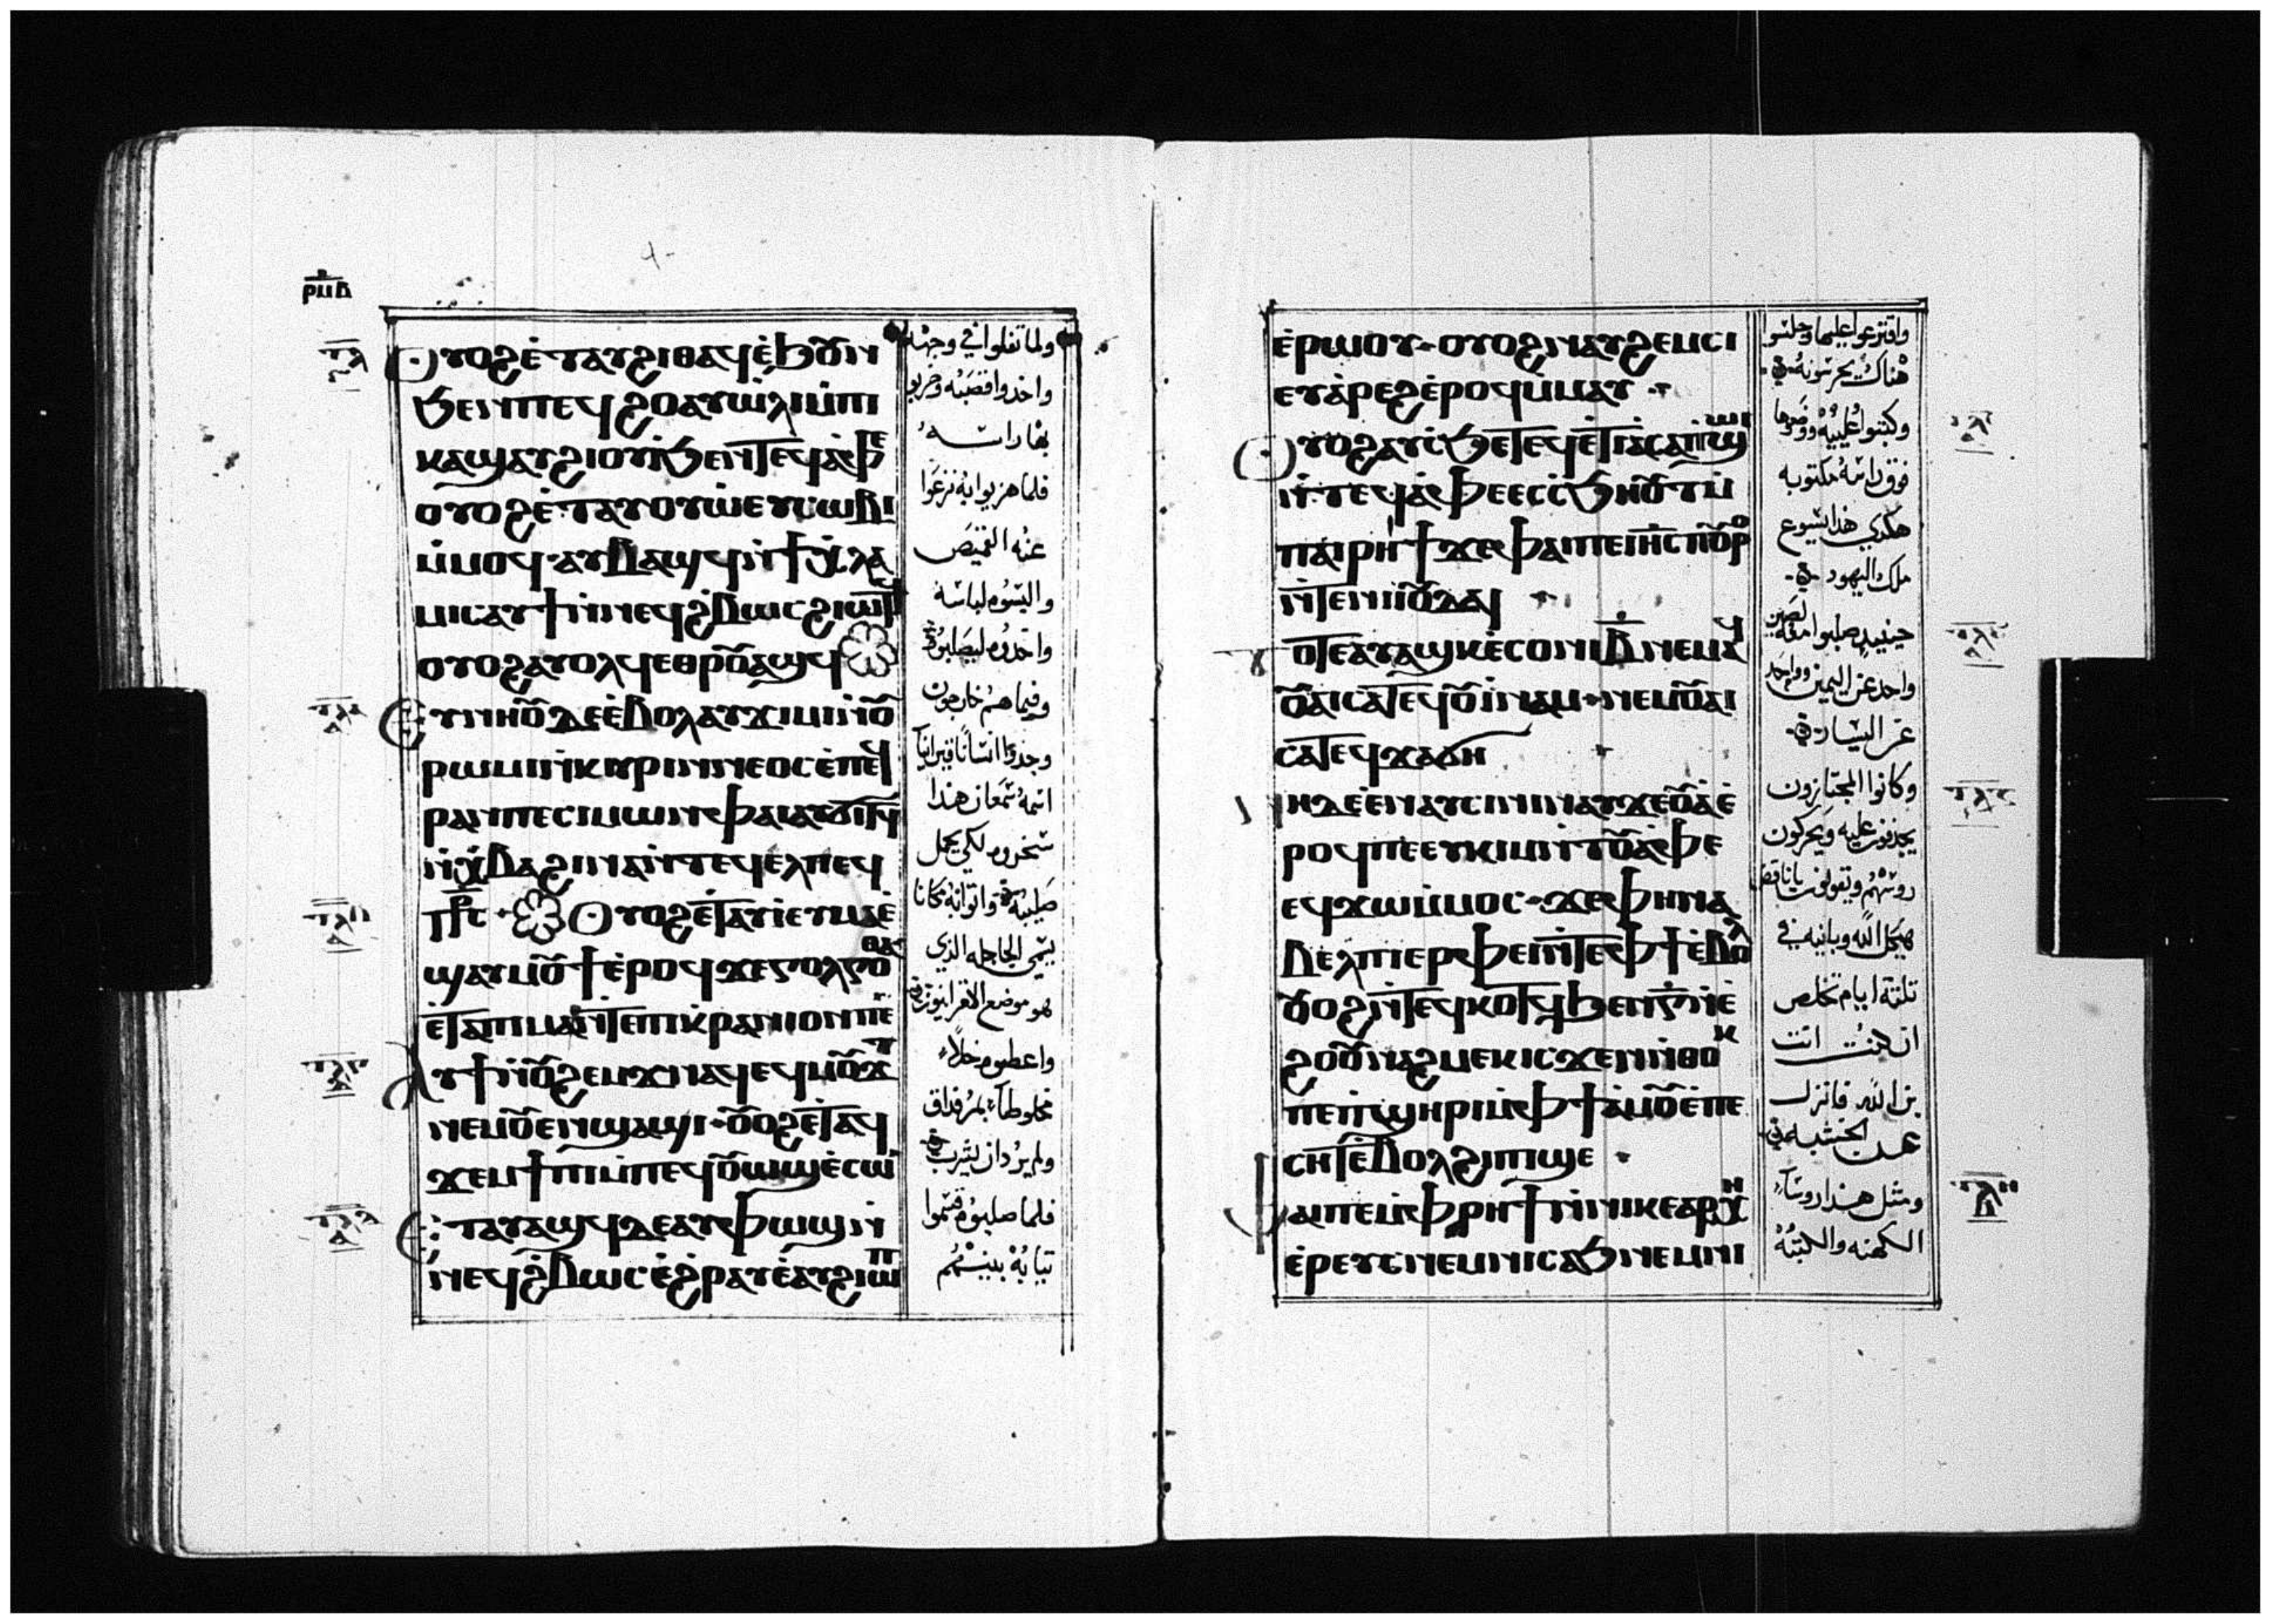 ⲣⲙⲃ
Ⲟⲩⲟϩ ⲉⲧⲁⲩϩⲓⲑⲁϥ ⲉϧⲟⲩⲛ
ϧⲉⲛ ⲡⲉϥϩⲟ ⲁⲩⲱⲗⲓ ⲙ̇ⲡⲓ
ⲕⲁϣ ⲁⲩϩⲓⲟⲩⲓ̇ ϧⲉⲛ ⲧⲉϥⲁⲫⲉ
ⲟⲩⲟϩ ⲉ̇ⲧⲁⲩⲟⲩⲱ ⲉⲩⲥⲱⲃⲓ
ⲙ̇ⲙⲟϥ ⲁⲩⲃⲁϣϥ ⲛ̇ϯⲭⲗⲁ
ⲙⲓⲥ ⲁⲩϯ ⲛ̇ⲛⲉϥϩ̇ⲃⲱⲥ ϩⲓⲱⲧϥ
ⲟⲩⲟϩ ⲁⲩⲟⲗϥ ⲉⲑⲣⲟⲩⲁϣϥ
Ⲉⲩⲛⲏⲟⲩ ⲇⲉ ⲉ̇ⲃⲟⲗ ⲁⲩϫⲓⲙⲓ ⲛ̇ⲟⲩ
ⲣⲱⲙⲓ ⲛ̇ⲕⲩⲣⲓⲛⲛⲉⲟⲥ ⲉ̇ⲡⲉϥ
ⲣⲁⲛ ⲡⲉ ⲥⲓⲙⲱⲛ ⲫⲁⲓ ⲁⲩϭⲓⲧϥ
ⲛ̇ⲭ̇ⲃⲁ ϩⲓⲛⲁ ⲛ̇ⲧⲉϥⲉⲗ ⲡⲉϥ
ⲡⲣⲥ Ⲟⲩⲟϩ ⲉ̇ⲧⲁⲩⲓ̇ ⲉⲩⲙⲁ ⲉ̇
ϣⲁⲩⲙⲟⲩϯ ⲉ̇ⲣⲟϥ ϫⲉ ⲅⲟⲗⲅⲟⲑⲁ
ⲉ̇ⲧⲁⲡⲓⲙⲁ ⲛ̇ⲧⲉ ⲡⲓⲕ̇ⲣⲁⲛⲓⲟⲛ ⲡⲉ
Ⲁⲩϯ ⲛ̇ⲟⲩϩⲉⲙϫ ⲛⲁϥ ⲉϥⲙⲟⲩϫⲧ
ⲛⲉⲙ ⲟⲩⲉⲛϣⲁϣⲓ ⲟⲩⲟϩ ⲉⲧⲁϥ
ϫⲉⲙϯⲡⲓ ⲙ̇ⲡⲉϥⲟⲩⲱϣ ⲉ̇ⲥⲱ
Ⲉⲧⲁⲩⲁϣϥ ⲇⲉ ⲁⲩⲫⲱϣ ⲛ̇
ⲛⲉϥϩ̇ⲃⲱⲥ ⲉ̇ϩ̇ⲣⲁⲩ ⲉ̇ⲁⲩϩⲓⲱⲡ
ولما تفلوا في وجهه
واخدوا قصبه وضربو
بها راسه
فلما هزيوا به نزعوا
عنه القميص
والبسوه لباسه
واخدوه ليصلبوه
وفيما هم خارجون
وجدوا انسانا قيرانيا
اسمه سمعان هدا
سخروه لكي يحمل
صليبه واتوا به مكانا
يسمى الجاجله الذي
هو موضع الاقرانيون
واعطوه خلا
مخلوطا بمر فداق
ولم يرد ان يشرب
فلما صلبوه قسموا
تيابه بينهم
ⲉ̇ⲣⲱⲟⲩ ⲟⲩⲟϩ ⲛⲁⲩϩⲉⲙⲥⲓ
ⲉⲩⲁ̇ⲣⲉϩ ⲉ̇ⲣⲟϥ ⲙ̇ⲙⲁⲩ
Ⲟⲩⲟϩ ⲁⲩⲥ̇ϧⲉ ⲧⲉϥⲉ̇ⲧⲓⲁ ⲥⲁⲡϣⲱⲓ
ⲛ̇ⲧⲉϥⲁⲫⲉ ⲉⲥⲥ̇ϧⲏⲟⲩⲧ ⲙ̇
ⲡⲁⲓⲣⲏϯ ϫⲉ ⲫⲁⲓ ⲡⲉ ⲓⲏⲥ ⲡⲟⲩⲣⲟ
ⲛ̇ⲧⲉ ⲛⲓⲓⲟⲩⲇⲁⲓ
Ⲧⲟⲧⲉ ⲁⲩⲁϣ ⲕⲉⲥⲟⲛⲓ ⲃ̅ ⲛⲉⲙⲁϥ
ⲟⲩⲁⲓ ⲥⲁⲧⲉϥⲟⲩⲓ̇ⲛⲁⲙ ⲛⲉⲙ ⲟⲩⲁⲓ
ⲥⲁⲧⲉϥϫⲁϭⲏ
Ⲛⲏ ⲇⲉ ⲉ̇ⲛⲁⲩⲥⲓⲛⲓ ⲛⲁⲩϫⲉⲟⲩⲁ̇ ⲉ̇
ⲣⲟϥ ⲡⲉ ⲉⲩⲕⲓⲙ ⲛ̇ⲧⲟⲩⲁⲫⲉ
ⲉϥϫⲱ ⲙ̇ⲙⲟⲥ ϫⲉ ⲫⲏ ⲛⲁ
ⲃⲉⲗ ⲡⲓⲉⲣⲫⲉⲓ ⲛ̇ⲧⲉ ⲫϯ ⲉ̇ⲃⲟⲗ
ⲟⲩⲟϩ ⲛ̇ⲧⲉϥⲕⲟⲧϥ ϧⲉⲛ ⲅ̅ ⲛ̇ⲉ̇
ϩⲟⲟⲩ ⲛⲁϩⲙⲉⲕ ⲓⲥϫⲉ ⲛ̇ⲑⲟⲕ
ⲡⲉ ⲡ̇ϣⲏⲣⲓ ⲙ̇ⲫϯ ⲁ̇ⲙⲟⲩ ⲉ̇ⲡⲉ
ⲥⲏⲧ ⲉ̇ⲃⲟⲗ ϩⲓ ⲡⲓϣⲉ
Ⲡⲁⲓ ⲡⲉ ⲙ̇ⲫⲣⲏϯ ⲛ̇ⲛⲓⲕⲉⲁⲣⲭⲏ
ⲉ̇ⲣⲉⲩⲥ ⲛⲉⲙ ⲛⲓⲥⲁϧ ⲛⲉⲙ ⲛⲓ
واقترعوا عليها وجلسوا
هناك يحرسونه
وكتبوا عليته ووضعوها
فوق راسه مكتوبه
هكدي هدا يسوع
ملك اليهود
حينيد صلبوا معه لصين
واحد عن اليمين وواحد
عن اليسار
وكانوا المجتازون
يجدفون عليه ويحركون
روسهم ويقولون ياناقض
هيكل الله وبانيه في
تلتة ايام تخلص
ان كنت انت
بن الله فانزل
عن الخشبه
ومتل هدا روسا
الكهنه والكتبه